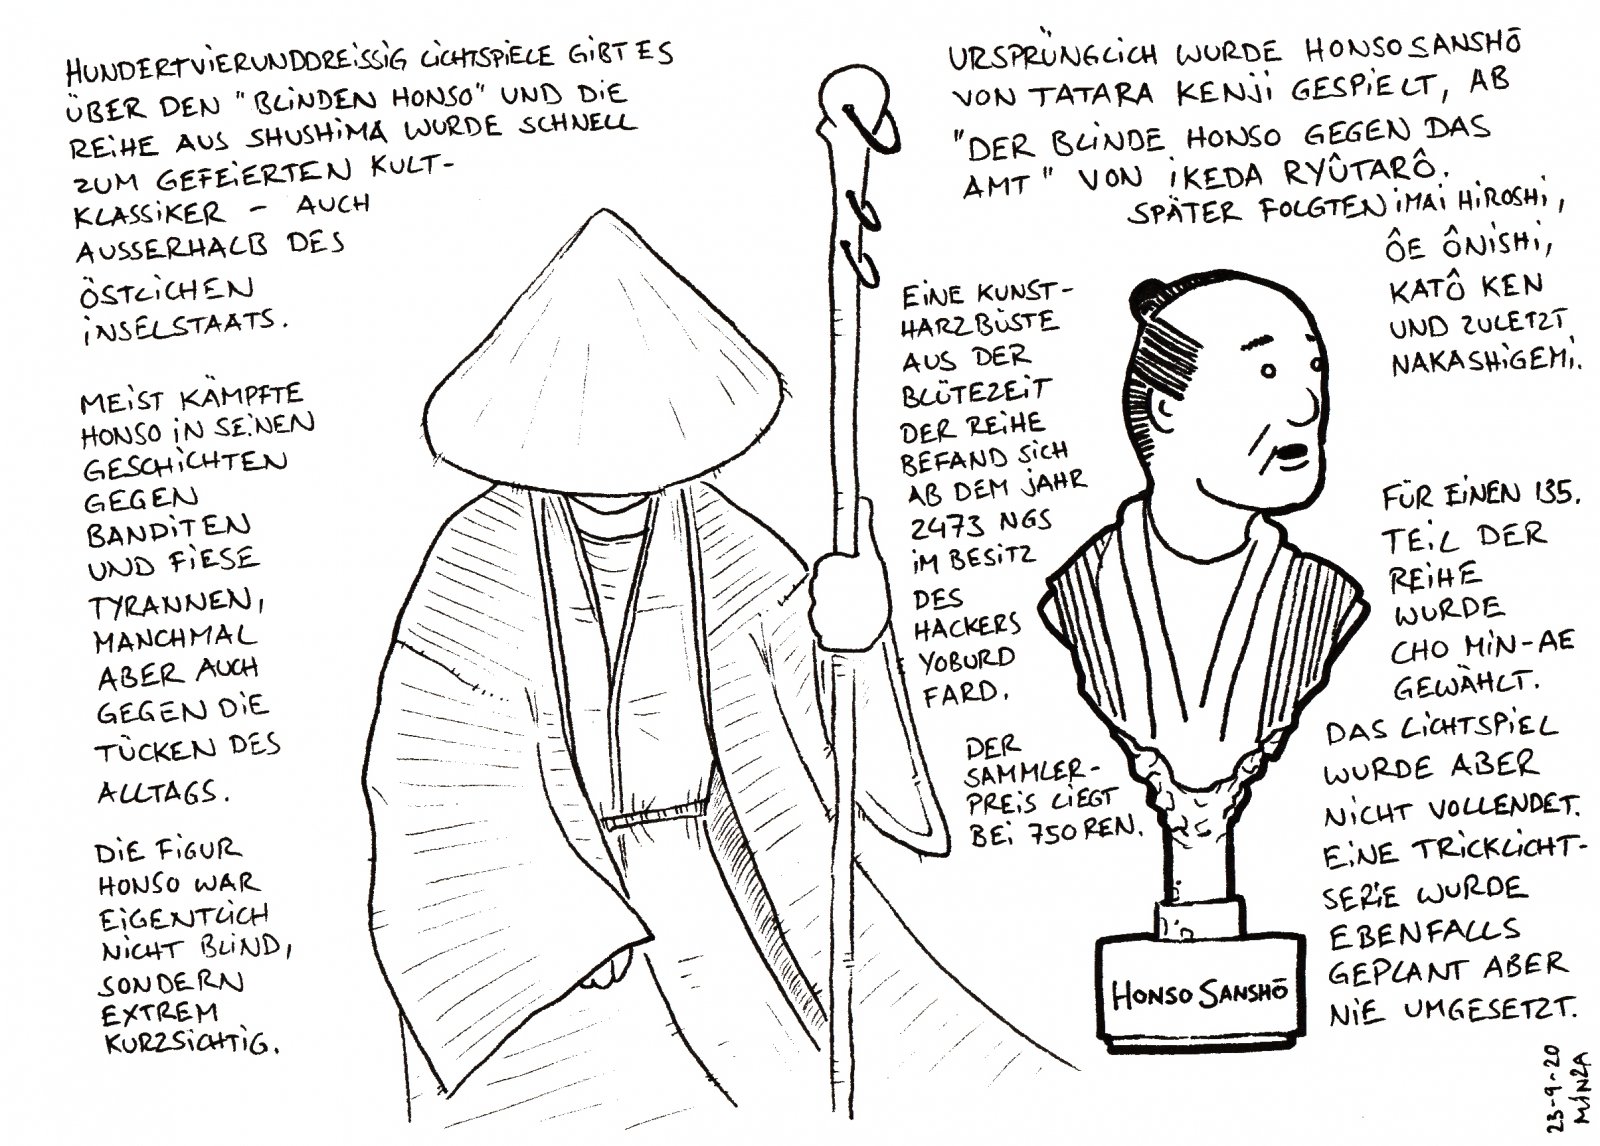 HUNDERTVIERUNDDREISSIG LICHTSPIELE GIBT ES
ÜBER DEN "BLINDEN HONSO" UND DIE
REIHE AUS SHUSHIMA WURDE SCHNELL
ZUM GEFEIERTEN KULT-
KLASSIKER - AUCH
AUSSERHALB DES
ÖSTLICHEN
INSELSTAATS.
MEIST KÄMPFTE
HONSO IN SEINEN
GESCHICHTEN
GEGEN
BANDITEN
UND FIESE
TYRANNEN,
MANCHMAL
ABER AUCH
GEGEN DIE
TÜCKEN DES
ALLTAGS.
DIE FIGUR
HONSO WAR
EIGENTLICH
NICHT BLIND,
SONDERN
EXTREM
KURZSICHTIG.
URSPRÜNGLICH WURDE HONSO SANSHŌ
VON TATARA KENJI GESPIELT, AB
"DER BLINDE HONSO GEGEN DAS
AMT" VON IKEDA RYÛTARÔ.
SPÄTER FOLGTEN IMAI HIROSHI,
ÔE ÔNISHI,
KATÔ KEN
UND ZULETZT
NAKASHIGEMI.
EINE KUNST-
HARZBÜSTE
AUS DER
BLÜTEZEIT
DER REIHE
BEFAND SICH
AB DEM JAHR
2473 NGS
IM BESITZ
DES
HACKERS
YOBURD
FARD.
DER
SAMMLER-
PREIS LIEGT
BEI 750 REN.
FÜR EINEN 135.
TEIL DER
REIHE
WURDE
CHO MIN-AE
GEWÄHLT.
DAS LICHTSPIEL
WURDE ABER
NICHT VOLLENDET.
EINE TRICKLICHT-
SERIE WURDE
EBENFALLS
GEPLANT ABER
NIE UMGESETZT.
HONSO SANSHŌ
23-9-20
MINZA